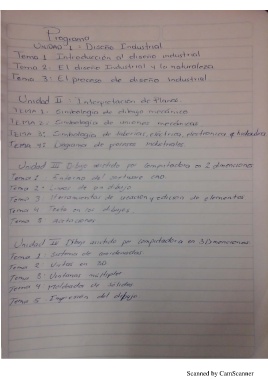 Programa
Unidad 1 - Diseño Industrial
Tema 1 Introducción al diseño industrial
Tema 2: El diseño Industrial y la naturaleza
Tema 3: El proceso de diseño Industrial
Unidad II : Interpretación de Planos
TEMA 1: Simbología de dibujo mecánico
TEMA 2: Simbología de uniones mecánicas
TEMA 3: Simbología de tuberías, eléctricas, electrónicas y soldadura
TEMA 4: Diagramas de procesos industriales
Unidad III Dibujo asistido por computadora en 2 dimensiones
Tema 1 Entorno del software CAD
Tema 2 Líneas de un dibujo
Tema 3 Herramientas de creación y edición de elementos
Tema 4 Texto en un dibujo
Tema 5 Acotaciones
Unidad IV Dibujo asistido por computadora en 3 Dimensiones
Tema 1: Sistema de coordenadas
Tema 2: Vistas en 3D
Tema 3: Ventanas múltiples
Tema 4 Modelado de sólidos
Tema 5 Impresión del dibujo
Scanned by CamScanner